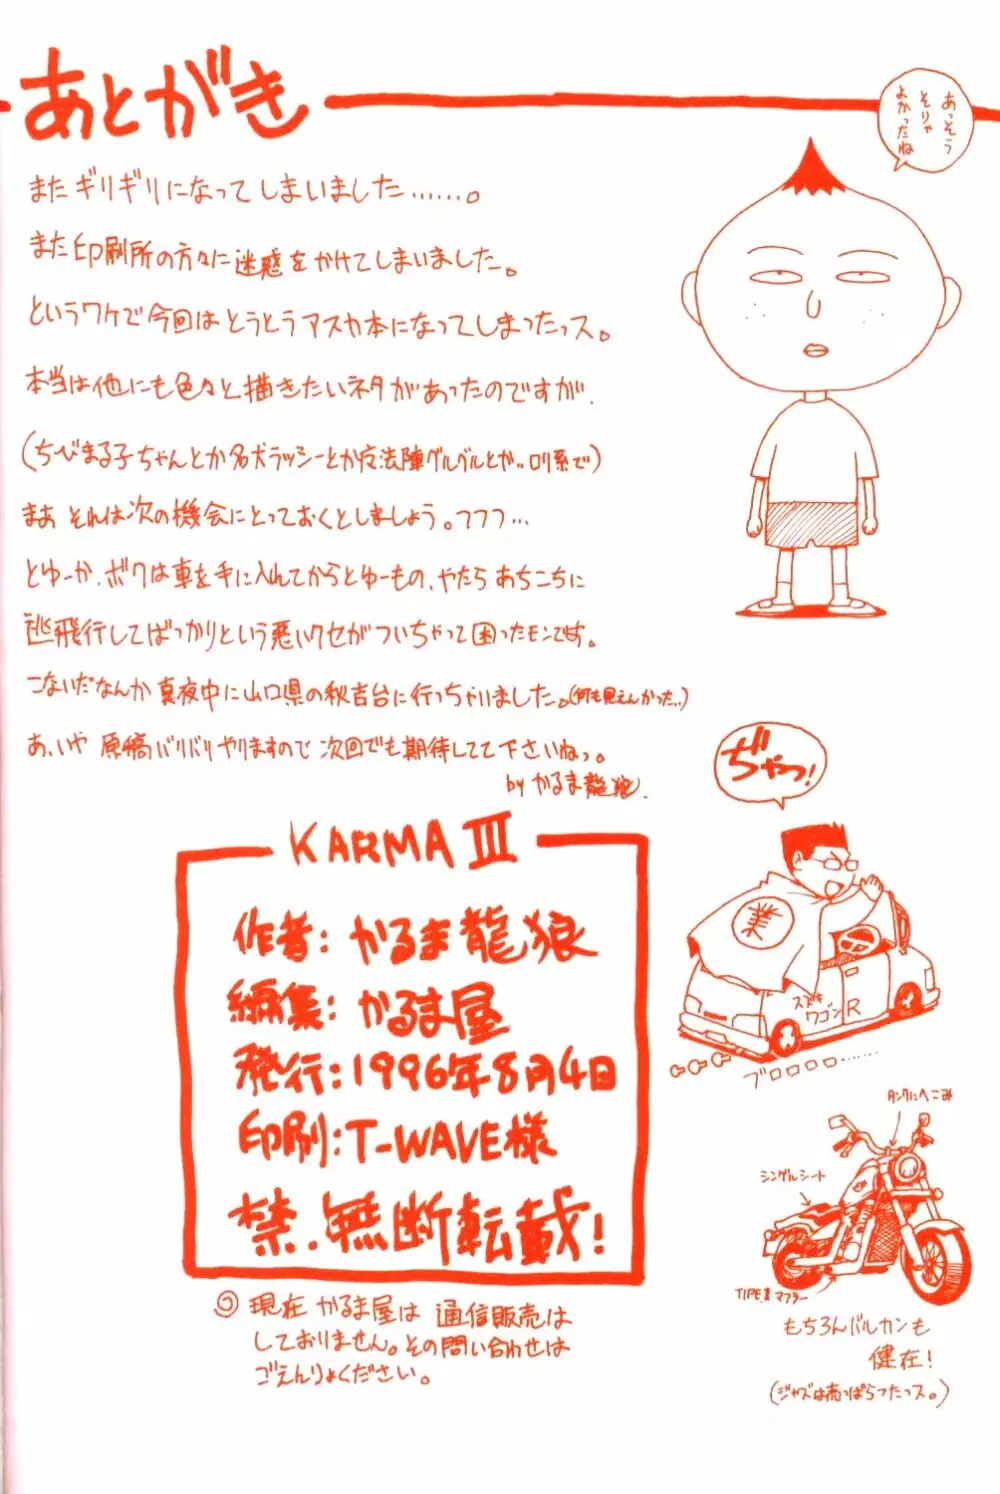 あとがき
またギリギリになってしまいました……。
また印刷所の方々に迷惑をかけてしまいました。
というワケで今回はとうとうアスカ本になってしまったっス。
本当は他にも色々と描きたいネタがあったのですが、
(ちびまる子ちゃんとか名犬ラッシーとか魔法陣グルグルとか。ロリ系で)
まあ それは次の機会にとっておくとしましょう。フフフ…
とゆーか、ボクは車を手に入れてからとゆーもの、やたら あちこちに
逃飛行してばっかりという悪いクセがついちゃって困ったモンです。
こないだなんか真夜中に山口県の秋吉台に行っちゃいました。(何も見えんかった…)
あ、いや 原稿バリバリやりますので 次回でも期待してて下さいねっ。
by かるま龍狼.
あっそう
そりゃ
よかったね
ぢゃっ!
業
スズキ
ワゴンR
ブロロロロ……
KARMA III
作者: かるま龍狼
編集: かるま屋
発行: 1996年8月4日
印刷: T-WAVE様
禁.無断転載!
現在 かるま屋は 通信販売は
しておりません。その問い合わせは
ごえんりょください。
タンクにヘこみ
シングルシート
TIPE II マフラー
もちろんバルカンも
健在!
(ジャズは売っぱらったっス。)